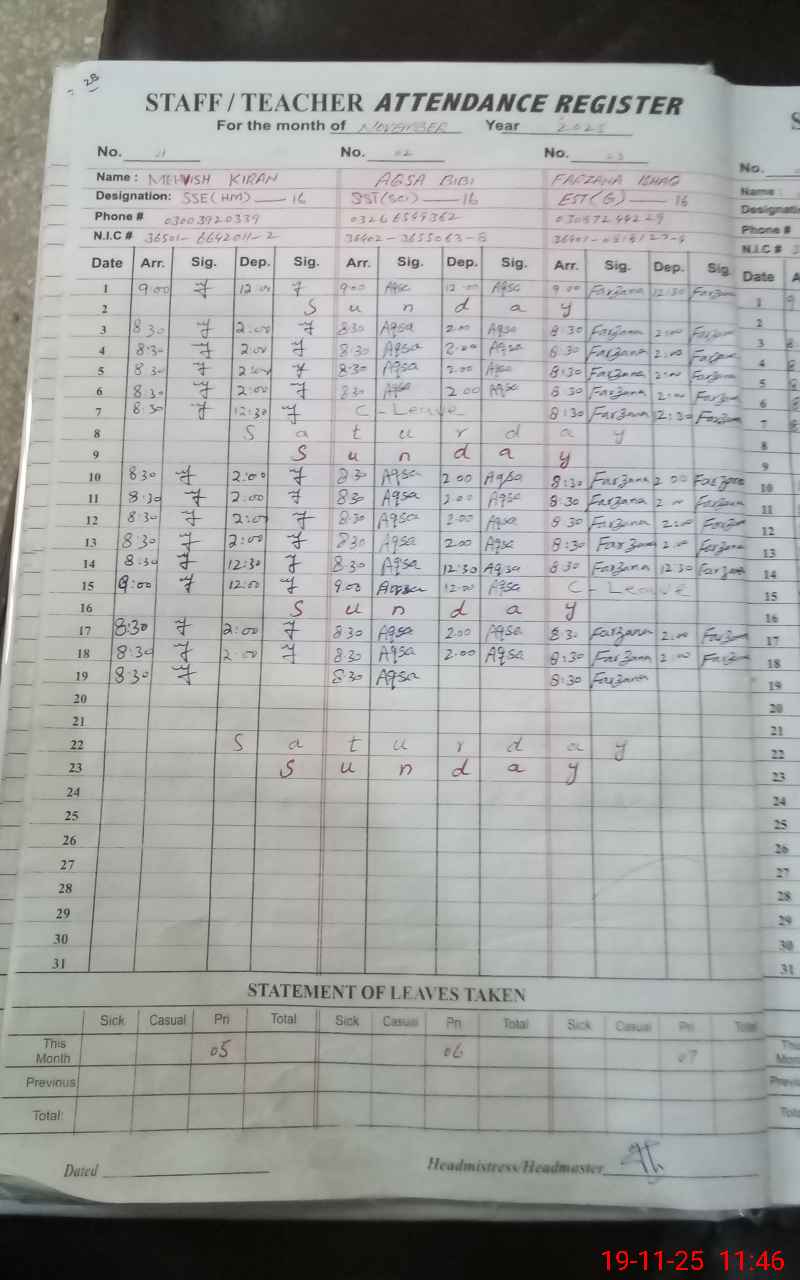 2B
STAFF / TEACHER ATTENDANCE REGISTER
For the month of NOVEMBER Year 2025
No. 01 No. 02 No. 03
Name : MEHVISH KIRAN AQSA BIBI FARZANA ISHAQ
Designation: SSE(HM) — 16 SST(SCI) — 16 EST(G) — 16
Phone # 03003920339 03266549362
N.I.C # 36501-6642011-2 36402-3655063-8
Date Arr. Sig. Dep. Sig. Arr. Sig. Dep. Sig. Arr. Sig. Dep. Sig.
1 9:00 12:00 9:00 Aqsa 12:00 Aqsa 9:00 Farzana 12:30 Farzana
2 S u n d a y
3 8:30 2:00 8:30 Aqsa 2:00 Aqsa 8:30 Farzana 2:00 Farzana
4 8:30 2:00 8:30 Aqsa 2:00 Aqsa 8:30 Farzana 2:00 Farzana
5 8:30 2:00 8:30 Aqsa 2:00 Aqsa 8:30 Farzana 2:00 Farzana
6 8:30 2:00 8:30 Aqsa 2:00 Aqsa 8:30 Farzana 2:00 Farzana
7 8:30 12:30 C-Leave 8:30 Farzana 12:30 Farzana
8 S a t u r d a y
9 S u n d a y
10 8:30 2:00 8:30 Aqsa 2:00 Aqsa 8:30 Farzana 2:00 Farzana
11 8:30 2:00 8:30 Aqsa 2:00 Aqsa 8:30 Farzana 2:00 Farzana
12 8:30 2:00 8:30 Aqsa 2:00 Aqsa 8:30 Farzana 2:00 Farzana
13 8:30 2:00 8:30 Aqsa 2:00 Aqsa 8:30 Farzana 2:00 Farzana
14 8:30 12:30 8:30 Aqsa 12:30 Aqsa 8:30 Farzana 12:30 Farzana
15 9:00 12:00 9:00 Aqsa 12:00 Aqsa C-Leave
16 S u n d a y
17 8:30 2:00 8:30 Aqsa 2:00 Aqsa 8:30 Farzana 2:00 Farzana
18 8:30 2:00 8:30 Aqsa 2:00 Aqsa 8:30 Farzana 2:00 Farzana
19 8:30 8:30 Aqsa 8:30 Farzana
20
21
22 S a t u r d a y
23 S u n d a y
24
25
26
27
28
29
30
31
STATEMENT OF LEAVES TAKEN
Sick Casual Pri Total Sick Casual Pri Total Sick Casual Pri Total
This Month 05 06 07
Previous
Total:
Dated Headmistress/Headmaster
19-11-25 11:46